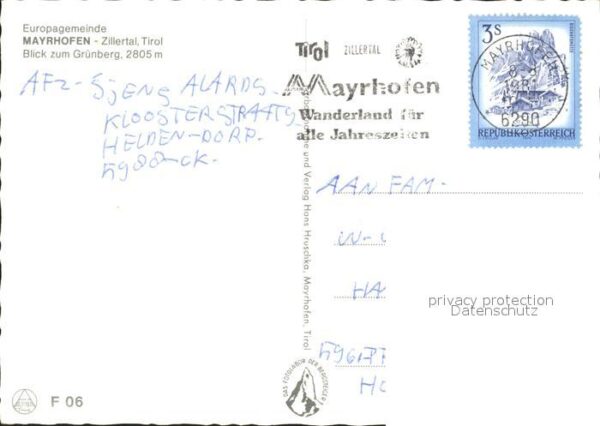 Europagemeinde
MAYRHOFEN - Zillertal, Tirol
Blick zum Grünberg, 2805 m
AFZ- SJENG ALARDS-
KLOOSTERSTRAAT
HELDEN-DORP-
Tirol ZILLERTAL
Mayrhofen
Wanderland für
alle Jahreszeiten
3S
MAYRHOFEN
6290
REPUBLIK ÖSTERREICH
und Verlag Hans Hruschka, Mayrhofen, Tirol
AAN FAM-
W-
HA
privacy protection
Datenschutz
F 06